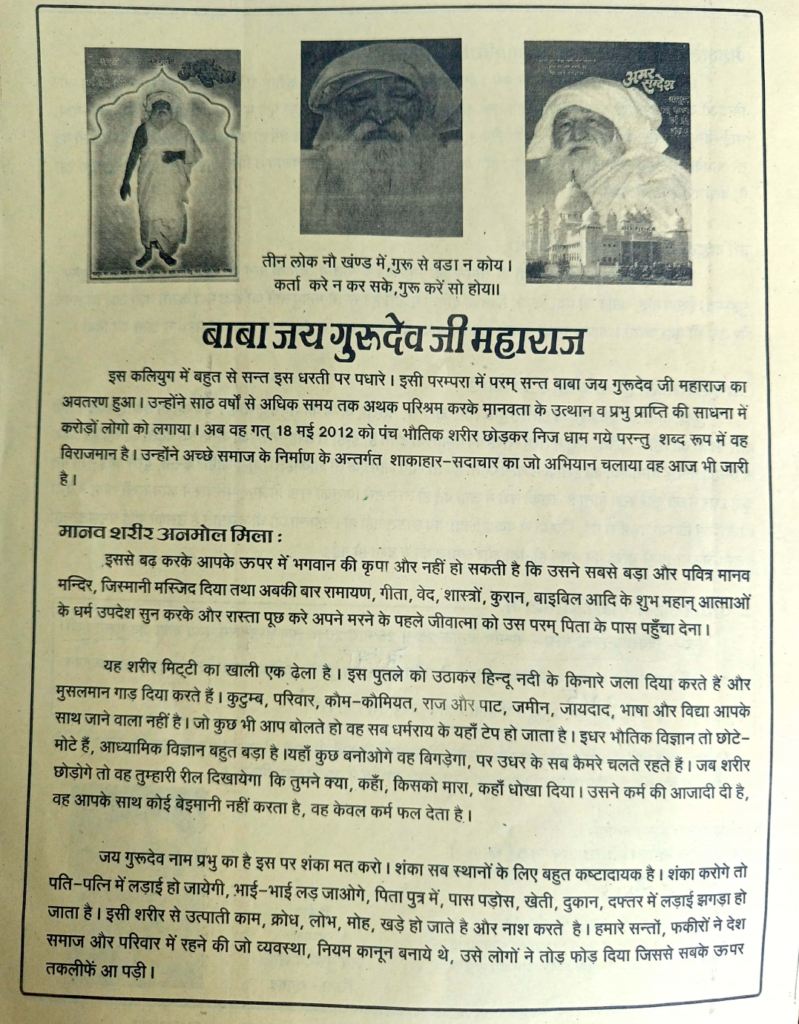 अमर
सन्देश
तीन लोक नौ खण्ड में,गुरू से बडा न कोय।
कर्ता करे न कर सके,गुरू करें सो होय॥
बाबा जय गुरूदेव जी महाराज
इस कलियुग में बहुत से सन्त इस धरती पर पधारे। इसी परम्परा में परम् सन्त बाबा जय गुरूदेव जी महाराज का
अवतरण हुआ। उन्होंने साठ वर्षो से अधिक समय तक अथक परिश्रम करके मानवता के उत्थान व प्रभु प्राप्ति की साधना में
करोड़ों लोगो को लगाया। अब वह गत् 18 मई 2012 को पंच भौतिक शरीर छोड़कर निज धाम गये परन्तु शब्द रूप में वह
विराजमान है। उन्होंने अच्छे समाज के निर्माण के अन्तर्गत शाकाहार-सदाचार का जो अभियान चलाया वह आज भी जारी
है।
मानव शरीर अनमोल मिला :
इससे बढ़ करके आपके ऊपर में भगवान की कृपा और नहीं हो सकती है कि उसने सबसे बड़ा और पवित्र मानव
मन्दिर, जिस्मानी मस्जिद दिया तथा अबकी बार रामायण, गीता, वेद, शास्त्रों, कुरान, बाइबिल आदि के शुभ महान् आत्माओं
के धर्म उपदेश सुन करके और रास्ता पूछ करे अपने मरने के पहले जीवात्मा को उस परम् पिता के पास पहुँचा देना।
यह शरीर मिट्टी का खाली एक ढ़ेला है। इस पुतले को उठाकर हिन्दू नदी के किनारे जला दिया करते हैं और
मुसलमान गाड़ दिया करते हैं। कुटुम्ब, परिवार, कौम-कौमियत, राज और पाट, जमीन, जायदाद, भाषा और विद्या आपके
साथ जाने वाला नहीं है। जो कुछ भी आप बोलते हो वह सब धर्मराय के यहाँ टेप हो जाता है। इधर भौतिक विज्ञान तो छोटे-
मोटे हैं, आध्यामिक विज्ञान बहुत बड़ा है।यहाँ कुछ बनोओगे वह बिगड़ेगा, पर उधर के सब कैमरे चलते रहते हैं। जब शरीर
छोड़ोगे तो वह तुम्हारी रील दिखायेगा कि तुमने क्या, कहाँ, किसको मारा, कहाँ धोखा दिया। उसने कर्म की आजादी दी है,
वह आपके साथ कोई बेइमानी नहीं करता है, वह केवल कर्म फल देता है।
जय गुरूदेव नाम प्रभु का है इस पर शंका मत करो। शंका सब स्थानों के लिए बहुत कष्टादायक है। शंका करोगे तो
पति-पत्नि में लड़ाई हो जायेगी, भाई-भाई लड़ जाओगे, पिता पुत्र में, पास पड़ोस, खेती, दुकान, दफ्तर में लड़ाई झगड़ा हो
जाता है। इसी शरीर से उत्पाती काम, क्रोध, लोभ, मोह, खड़े हो जाते है और नाश करते है। हमारे सन्तों, फकीरों ने देश
समाज और परिवार में रहने की जो व्यवस्था, नियम कानून बनाये थे, उसे लोगों ने तोड़ फोड़ दिया जिससे सबके ऊपर
तकलीफें आ पड़ी।